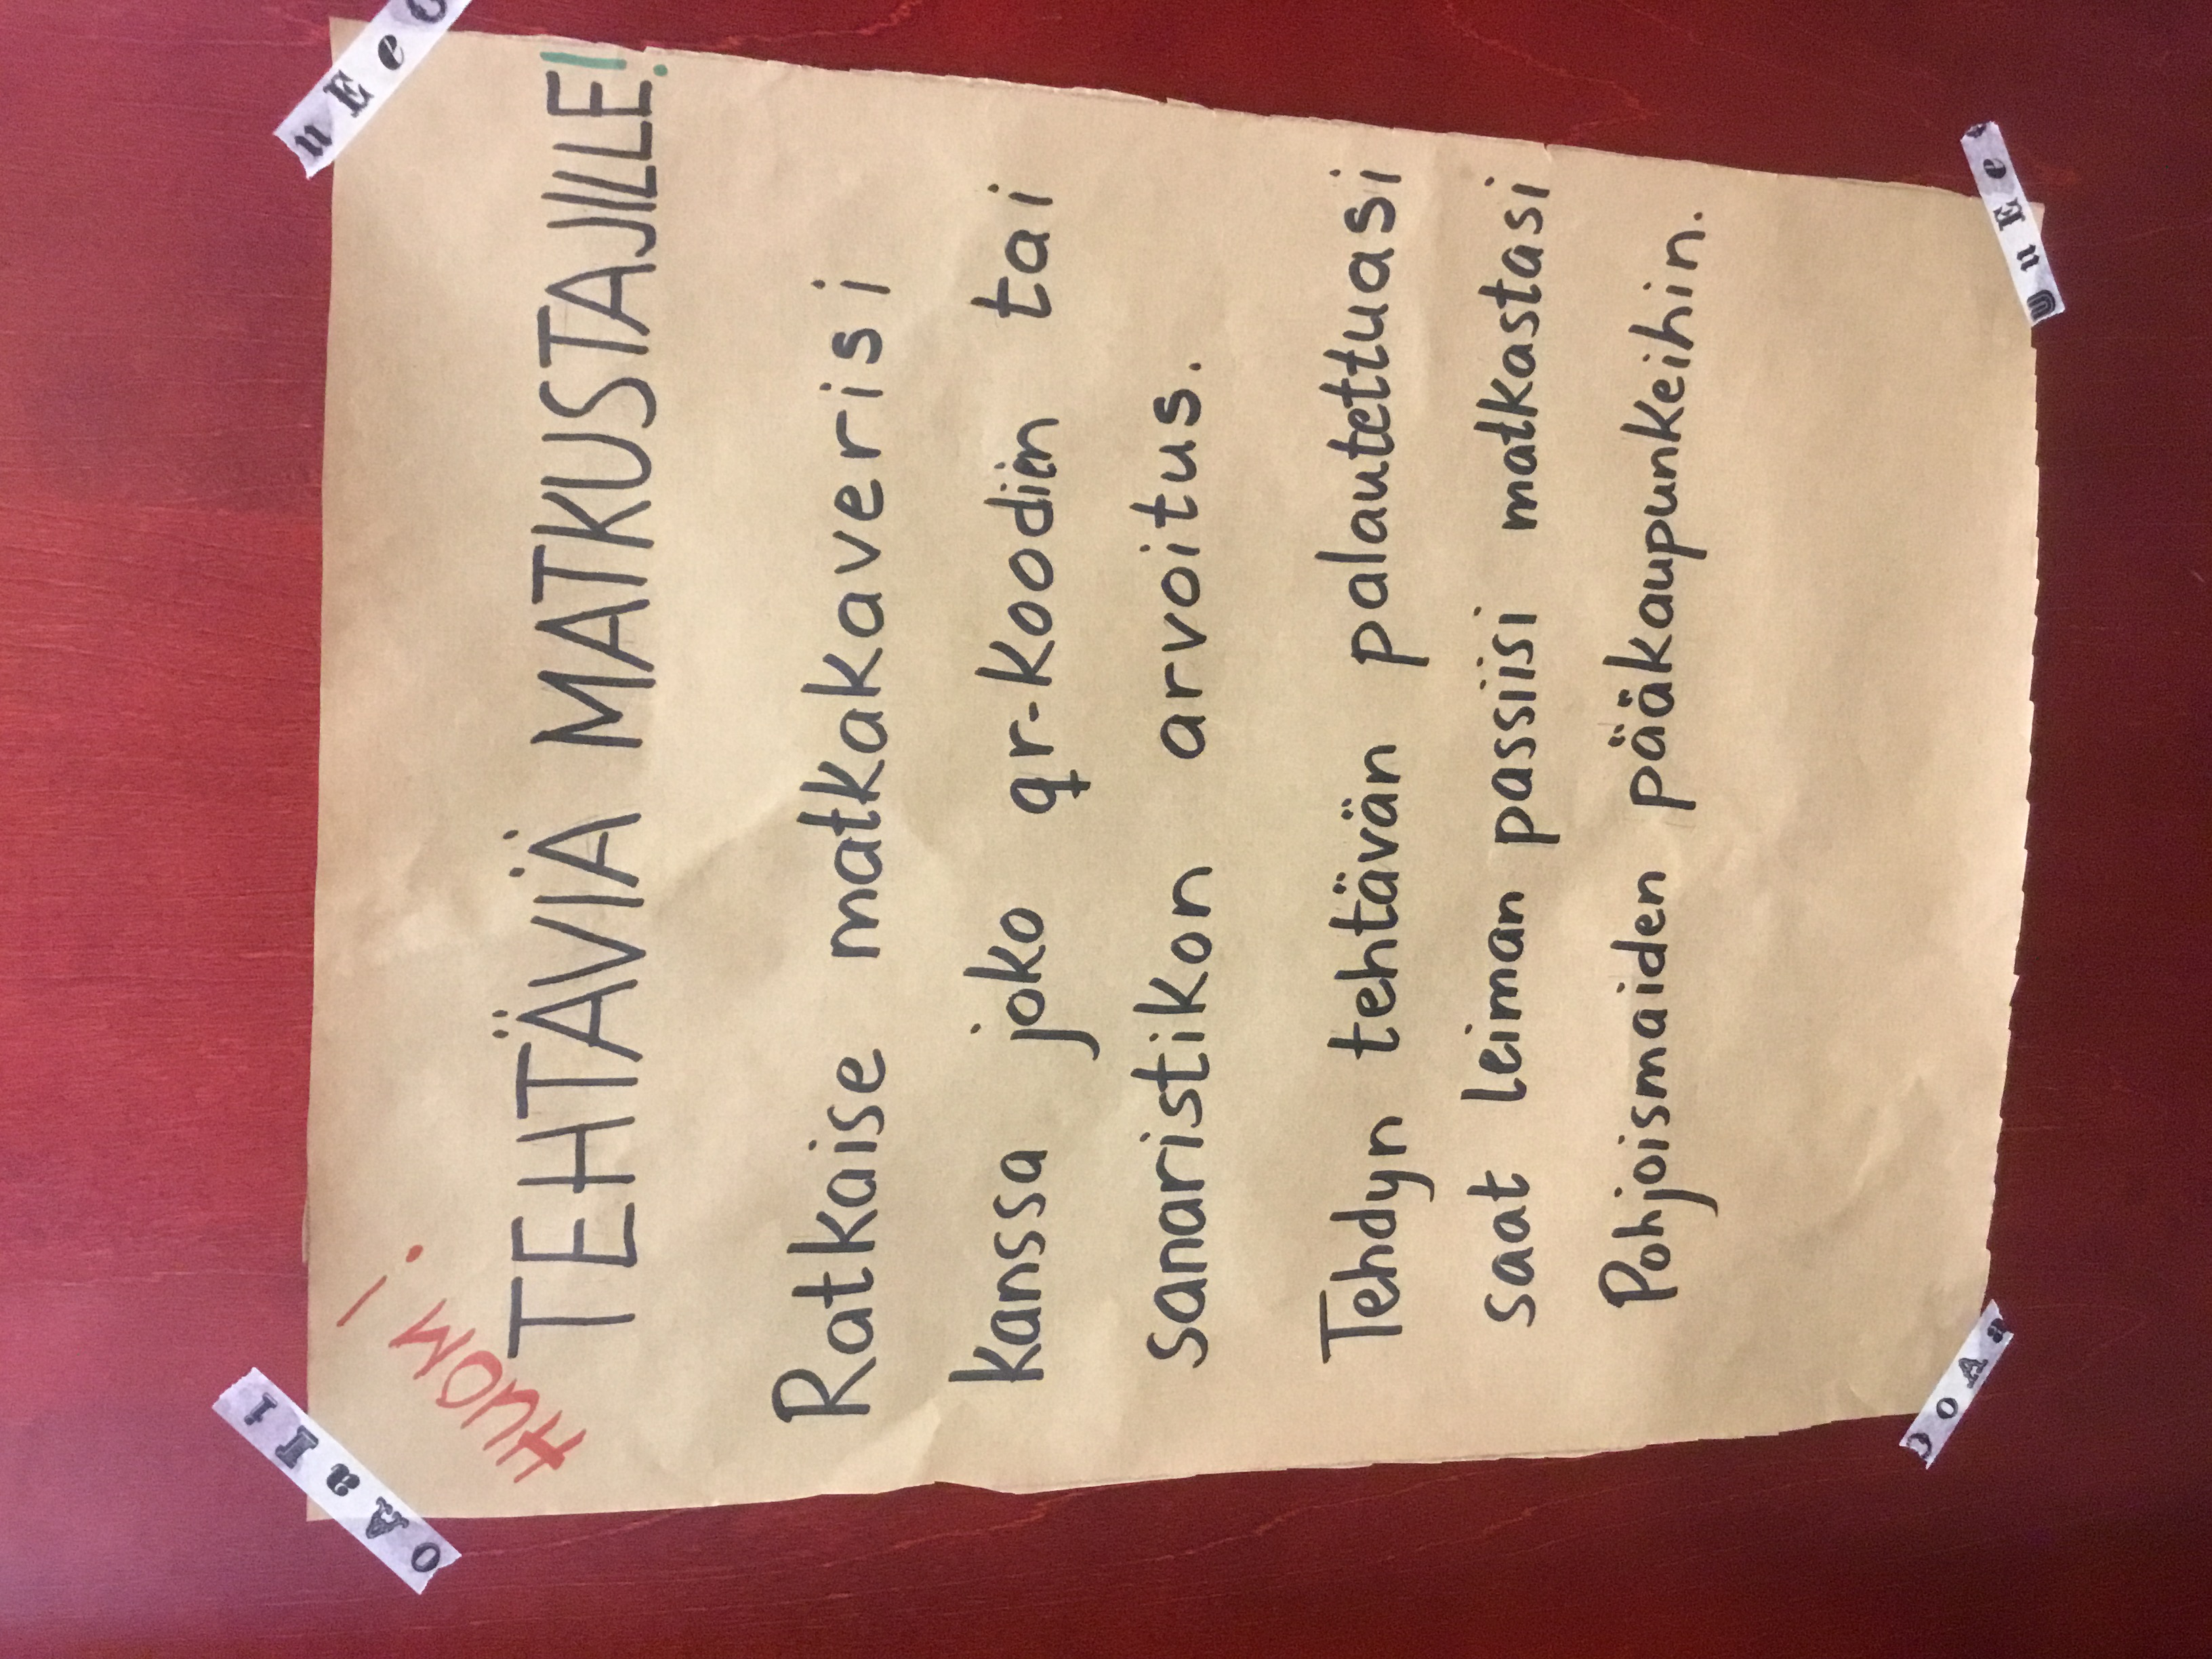 HUOM!
TEHTÄVIÄ MATKUSTAJILLE!
Ratkaise matkakaverisi
kanssa joko qr-koodien tai
sanaristikon arvoitus.
Tehdyn tehtävän palautettuasi
saat leiman passiisi matkastasi
Pohjoismaiden pääkaupunkeihin.